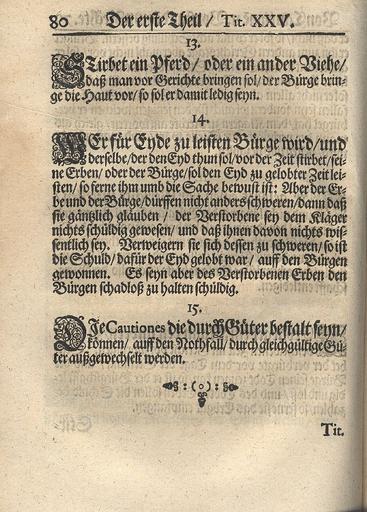 80 Der erste Theil / Tit. XXV.
13.
STirbet ein Pferd / oder ein ander Viehe /
daß man vor Gerichte bringen sol / der Bürge brin-
ge die Haut vor / so sol er damit ledig seyn.
14.
WEr für Eyde zu leisten Bürge wird / und
derselbe / der den Eyd thun sol / vor der Zeit stirbet / sei-
ne Erben / oder der Bürge / sol den Eyd zu gelobter Zeit lei-
sten / so ferne ihm umb die Sache bewust ist: Aber der Er-
be und der Bürge / dürffen nicht anders schweren / dann daß
sie gäntzlich glauben / der Verstorbene sey dem Kläger
nichts schüldig gewesen / und daß ihnen davon nichts wis-
sentlich sey. Verweigern sie sich dessen zu schweren / so ist
die Schuld / dafür der Eyd gelobt war / auff den Bürgen
gewonnen. Es seyn aber des Verstorbenen Erben den
Bürgen schadloß zu halten schüldig.
15.
DIe Cautiones die durch Güter bestalt seyn /
können / auff den Nothfall / durch gleichgültige Gü-
ter außgewechselt werden.
Tit.